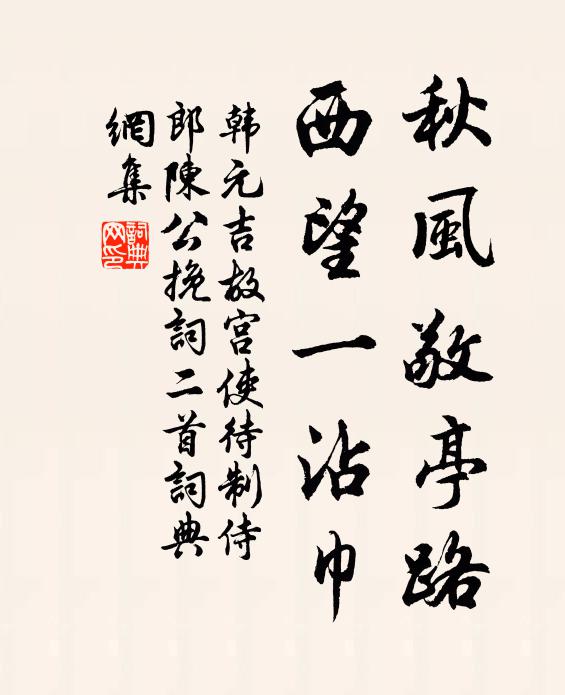 秋風敬亭路
西望一沾巾
韩元吉故宫使待制侍
郎陳公挽詞二首詞典
網集
詞典
网印